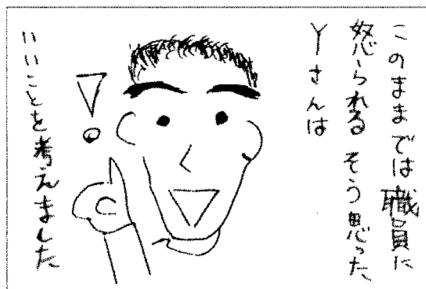 このままでは職員に
怒られる そう思った
Yさんは
!
いいことを考えました